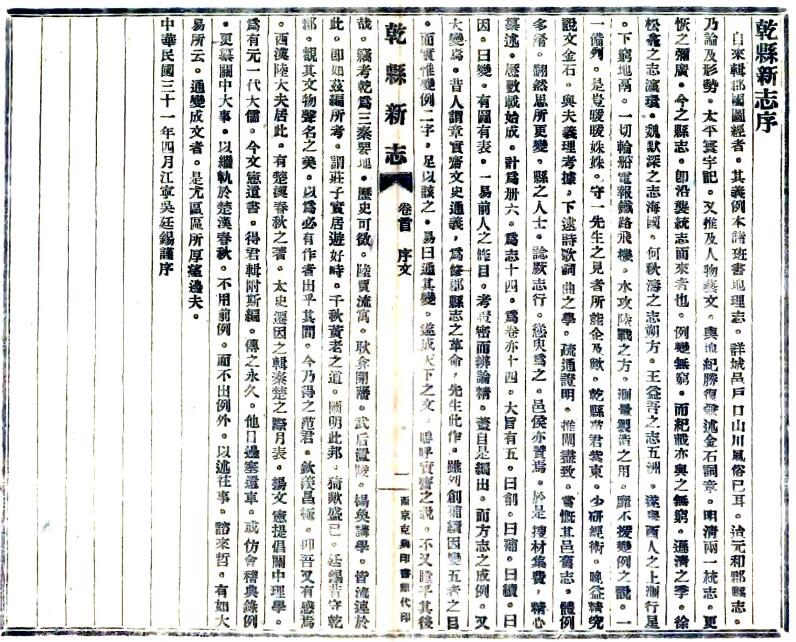 乾縣新志序
自來輯郡國圖經者。其義例本諸班書地理志。詳城邑戶口山川風俗已耳。洽元和郡縣志。
乃論及形勢。太平寰宇記。又推及人物藝文。輿地紀勝復兼述金石詞章。明清兩一統志。更
恢之彌廣。今之縣志。卽沿襲統志而來者也。例變無窮。而紀載亦與之無窮。遜清之季。徐
松龕之志瀛環。魏默深之志海國。何秋濤之志朔方。王益吾之志五洲。遂與西人之上測行星
。下窮地鬲。一切輪船電報鐵路飛機。水攻陸戰之方。測量製造之用。靡不援變例之說。一
一備列。是豈暖暖姝姝。守一先生之見者所能企及歟。乾縣范君紫東。少研經術。晚益精究
說文金石。與夫義理考據。下逮詩歌詞曲之學。疏通證明。推闡盡致。嘗慨其邑舊志。體例
多淆。翻然思所更變。縣之人士。諗厥志行。慫臾為之。邑侯亦贊焉。於是搜材集費。精心
纂述。歷數載始成。計為册六。為志十四。為卷亦十四。大旨有五。曰創。曰補。曰續。曰
因。曰變。有圖有表。一易前人之作目。考證密而辨論精。蓋自是編出。而方志之成例。又
大變焉。昔人謂章實齋文史通義。為修郡縣志之革命。先生此作。雖列創補續因變五者之目
。而實惟變例二字。足以該之。易曰通其變。遂成天下之文。嗚呼實齋之說。不又瞠乎其後
乾縣新志 卷首 序文 一 西京克興印書館代印
哉。竊考乾為三秦望地。歷史可徵。陸賈流寓。耿弇開藩。武后置陵。楊奐講學。皆流連於
此。卽如茲編所考。謂莊子實居遊好畤。千秋黃老之道。闡明此邦。猗歟盛已。廷錫昔守乾
郡。觀其文物聲名之美。以為必有作者出乎其間。今乃得之范君。欽羨曷極。抑吾又有感焉
。西漢陸大夫居此。有楚漢春秋之著。太史遷因之輯秦楚之際月表。楊文憲提倡關中理學。
為有元一代大儒。今文憲遺書。得君輯附斯編。傳之永久。他日過塞還車。或仿會稽典錄例
。更纂關中大事。以繼軌於楚漢春秋。不用前例。而不出例外。以述往事。諗來哲。有如大
易所云。通變成文者。是尤區區所厚望邊夫。
中華民國三十一年四月江寧吳廷錫謹序